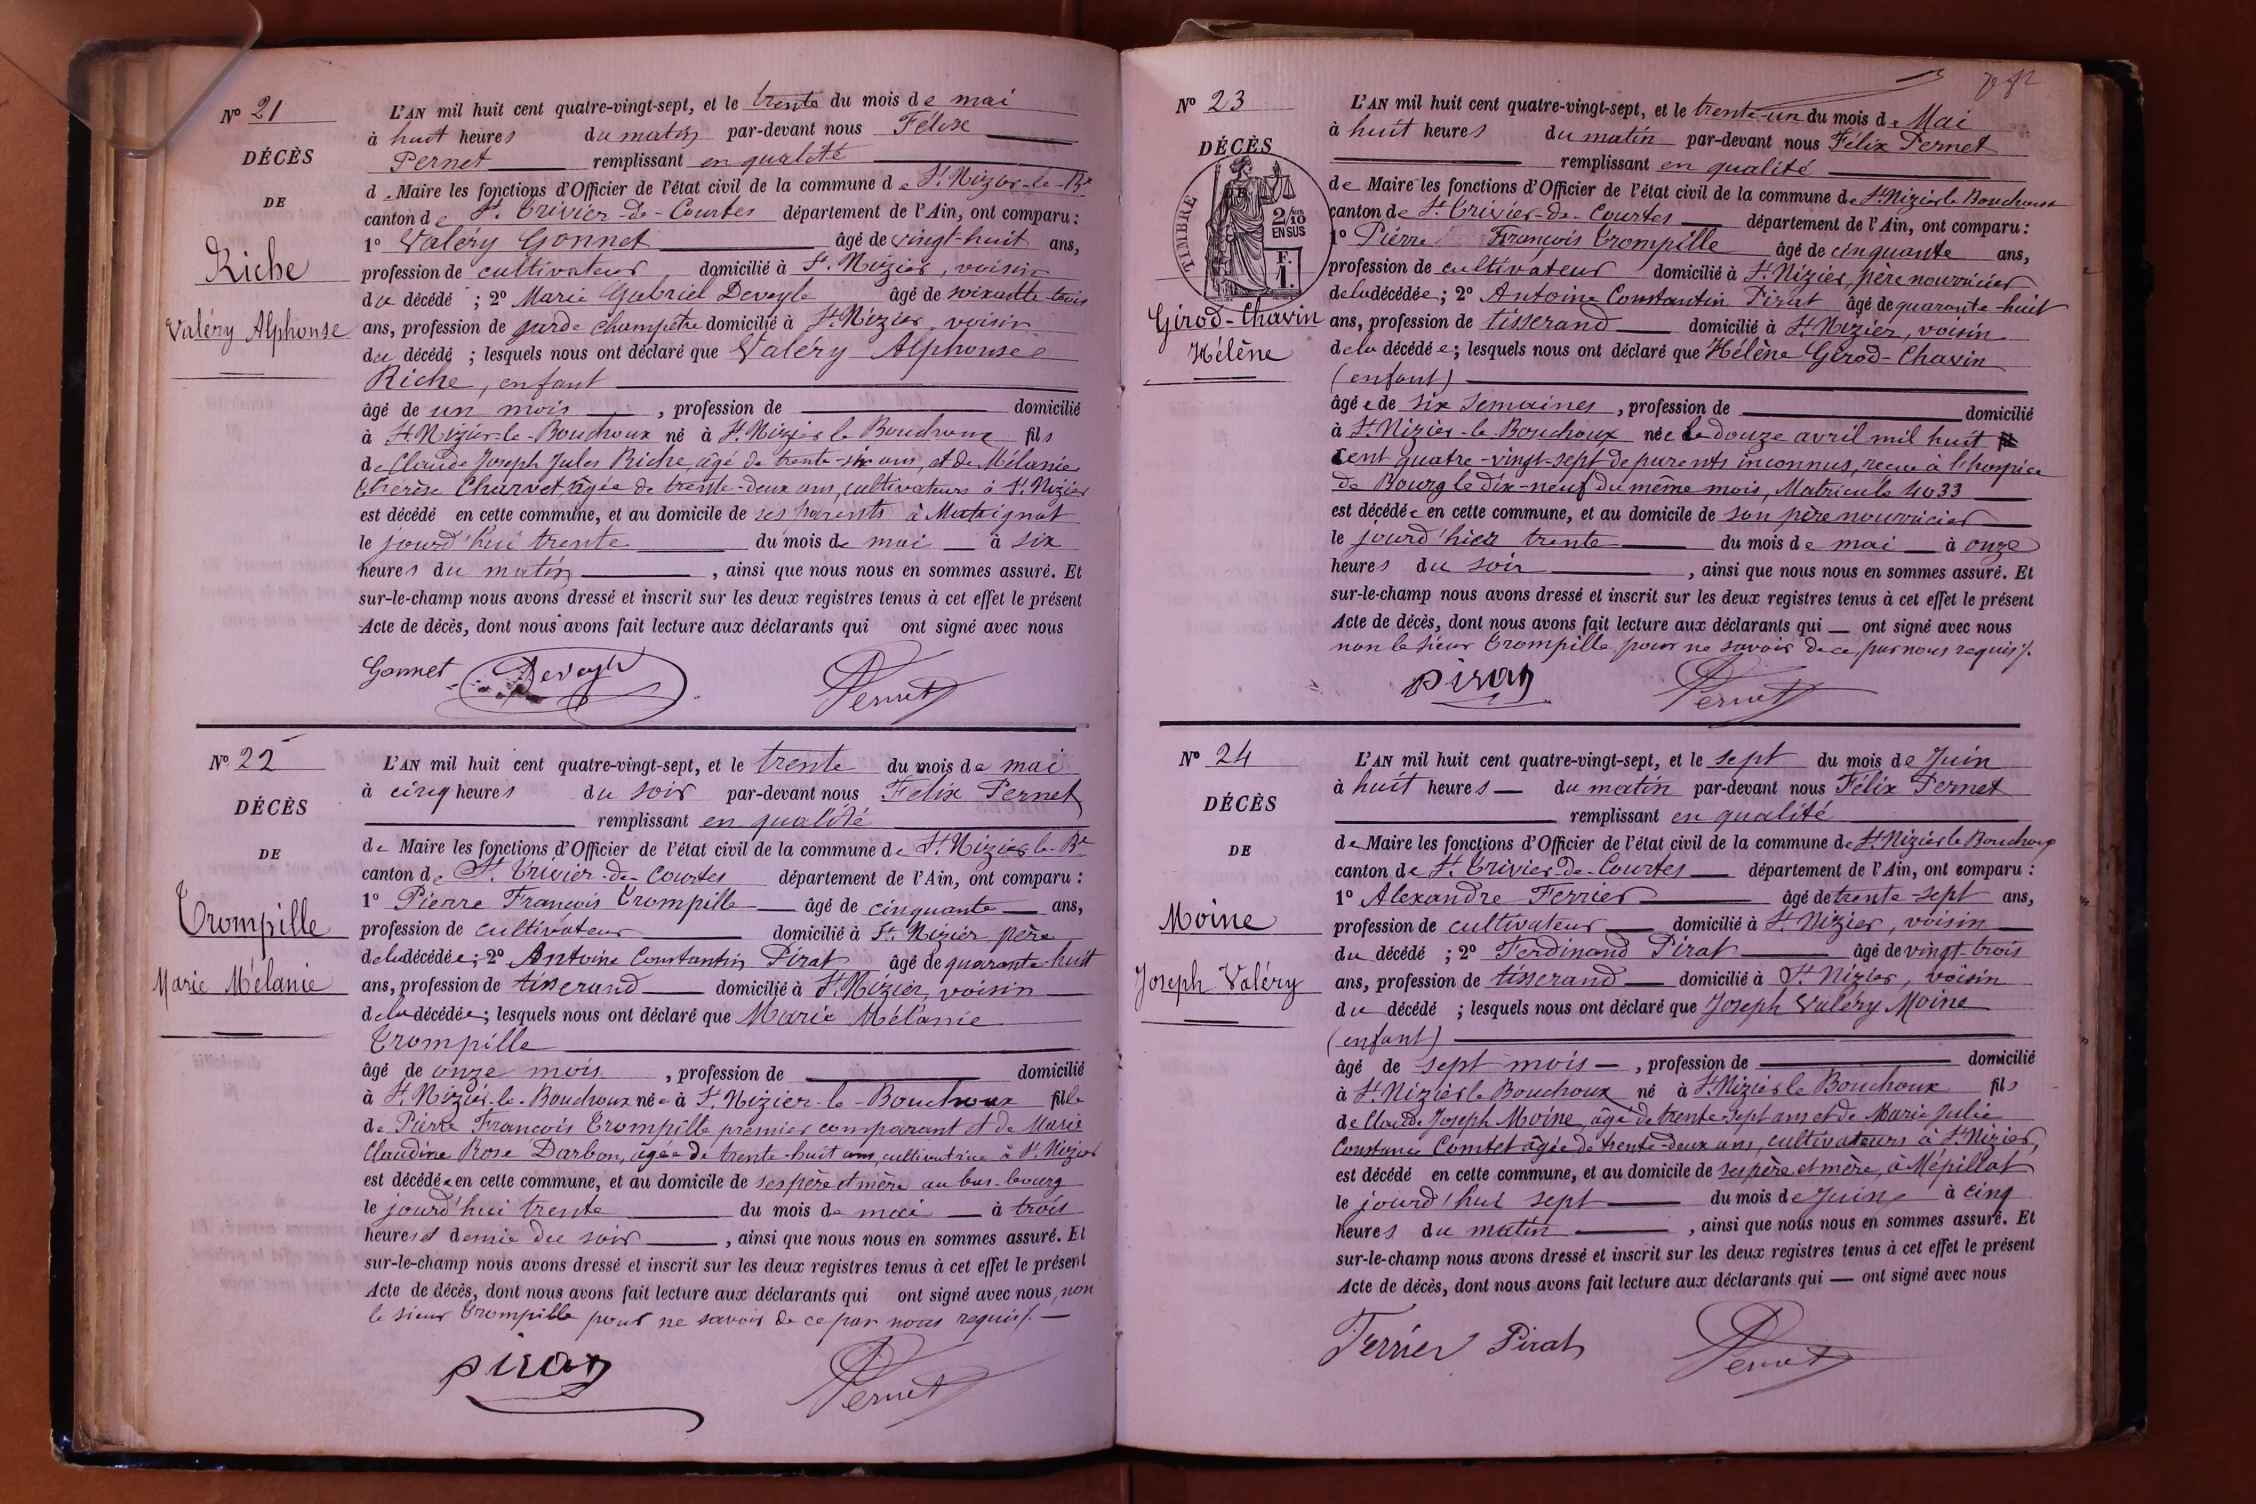 No 21
DÉCÈS
DE
Riche
Valéry Alphonse
L'AN mil huit cent quatre-vingt-sept, et le trente du mois de mai
à huit heures du matin par-devant nous Félix
Pernet remplissant en qualité
de Maire les fonctions d'Officier de l'état civil de la commune de St Nizier-le-Bx
canton de St. Trivier-de-Courtes département de l'Ain, ont comparu :
1° Valéry Gonnet âgé de vingt-huit ans,
profession de cultivateur domicilié à St. Nizier, voisin
du décédé ; 2° Marie Gabriel Deveyle âgé de soixante-trois
ans, profession de garde champêtre domicilié à St. Nizier, voisin
du décédé ; lesquels nous ont déclaré que Valéry Alphonse
Riche, enfant
âgé de un mois , profession de domicilié
à St Nizier-le-Bouchoux né à St. Nizier le Bouchoux fils
de Claude Joseph Jules Riche, âgé de trente-six ans, et de Mélanie
Thérèse Charvet âgée de trente-deux ans, cultivateurs à St. Nizier
est décédé en cette commune, et au domicile de ses parents à Mutaignat
le jourd'hui trente du mois de mai à six
heures du matin , ainsi que nous nous en sommes assuré. Et
sur-le-champ nous avons dressé et inscrit sur les deux registres tenus à cet effet le présent
Acte de décès, dont nous avons fait lecture aux déclarants qui ont signé avec nous
Gonnet Deveyle Pernet
No 22
DÉCÈS
DE
Trompille
Marie Mélanie
L'AN mil huit cent quatre-vingt-sept, et le trente du mois de mai
à cinq heures du soir par-devant nous Félix Pernet
remplissant en qualité
de Maire les fonctions d'Officier de l'état civil de la commune de St. Nizier-le-Bx
canton de St. Trivier-de-Courtes département de l'Ain, ont comparu :
1° Pierre François Trompille âgé de cinquante ans,
profession de cultivateur domicilié à St. Nizier père
de la décédée ; 2° Antoine Constantin Pirat âgé de quarante-huit
ans, profession de tisserand domicilié à St. Nizier, voisin
de la décédée ; lesquels nous ont déclaré que Marie Mélanie
Trompille
âgé de onze mois , profession de domicilié
à St. Nizier-le-Bouchoux née à St. Nizier-le-Bouchoux fille
de Pierre François Trompille premier comparant et de Marie
Claudine Rose Darbon, âgée de trente-huit ans, cultivatrice à St. Nizier
est décédée en cette commune, et au domicile de ses père et mère au bas-bourg
le jourd'hui trente du mois de mai à trois
heures et demie du soir , ainsi que nous nous en sommes assuré. Et
sur-le-champ nous avons dressé et inscrit sur les deux registres tenus à cet effet le présent
Acte de décès, dont nous avons fait lecture aux déclarants qui ont signé avec nous, non
le sieur Trompille pour ne savoir de ce par nous requis /.
pirat Pernet
No 23
DÉCÈS
TIMBRE
2/10
EN SUS
F.
1.
Girod-Chavin
Hélène
L'AN mil huit cent quatre-vingt-sept, et le trente-un du mois de Mai
à huit heures du matin par-devant nous Félix Pernet
remplissant en qualité
de Maire les fonctions d'Officier de l'état civil de la commune de St Nizier le Bouchoux
canton de St. Trivier-de-Courtes département de l'Ain, ont comparu :
1° Pierre François Trompille âgé de cinquante ans,
profession de cultivateur domicilié à St. Nizier, père nourricier
de la décédée ; 2° Antoine Constantin Pirat âgé de quarante-huit
ans, profession de tisserand domicilié à St. Nizier, voisin
de la décédée ; lesquels nous ont déclaré que Hélène Girod-Chavin
(enfant)
âgée de six semaines , profession de domicilié
à St. Nizier-le-Bouchoux née le douze avril mil huit
cent quatre-vingt-sept de parents inconnus, reçue à l'hospice
de Bourg le dix-neuf du même mois, Matricule 4033
est décédée en cette commune, et au domicile de son père nourricier
le jourd'hier trente du mois de mai à onze
heures du soir , ainsi que nous nous en sommes assuré. Et
sur-le-champ nous avons dressé et inscrit sur les deux registres tenus à cet effet le présent
Acte de décès, dont nous avons fait lecture aux déclarants qui ont signé avec nous
non le sieur Trompille pour ne savoir de ce par nous requis /.
pirat Pernet
No 24
DÉCÈS
DE
Moine
Joseph Valéry
L'AN mil huit cent quatre-vingt-sept, et le sept du mois de Juin
à huit heures du matin par-devant nous Félix Pernet
remplissant en qualité
de Maire les fonctions d'Officier de l'état civil de la commune de St Nizier le Bouchoux
canton de St. Trivier-de-Courtes département de l'Ain, ont comparu :
1° Alexandre Ferrier âgé de trente-sept ans,
profession de cultivateur domicilié à St. Nizier, voisin
du décédé ; 2° Ferdinand Pirat âgé de vingt-trois
ans, profession de tisserand domicilié à St. Nizier, voisin
du décédé ; lesquels nous ont déclaré que Joseph Valéry Moine
(enfant)
âgé de sept mois , profession de domicilié
à St Nizier le Bouchoux né à St Nizier le Bouchoux fils
de Claude Joseph Moine, âgé de trente-sept ans et de Marie Julie
Constance Comtet âgée de trente-deux ans, cultivateurs à St Nizier,
est décédé en cette commune, et au domicile de ses père et mère, à Mépillat
le jourd'hui sept du mois de Juin à cinq
heures du matin , ainsi que nous nous en sommes assuré. Et
sur-le-champ nous avons dressé et inscrit sur les deux registres tenus à cet effet le présent
Acte de décès, dont nous avons fait lecture aux déclarants qui ont signé avec nous
Ferrier Pirat Pernet